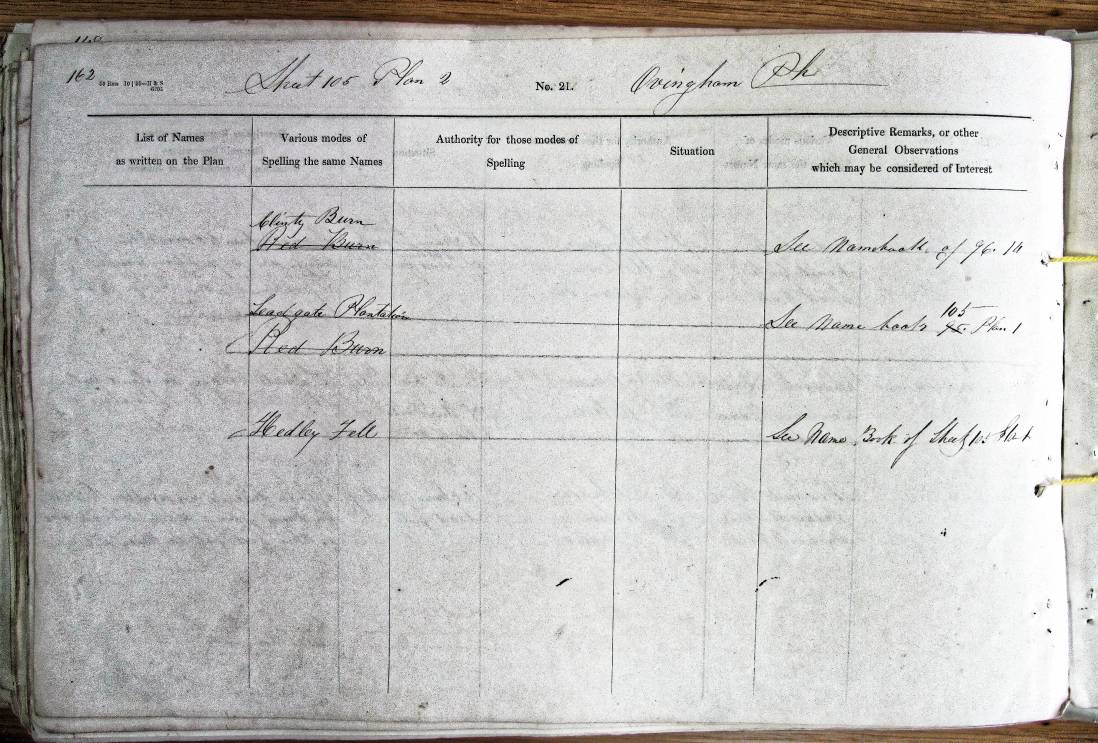 162 Sheet 105 Plan 2 No. 21. Ovingham Ph
List of Names
as written on the Plan
Various modes of
Spelling the same Names
Authority for those modes of
Spelling
Situation
Descriptive Remarks, or other
General Observations
which may be considered of Interest
Clinty Burn
Red Burn See Namebook of 96. 14
Leadgate Plantation See Name book 105 Plan 1
Red Burn
Hedley Fell See Name Book of Sheet 105 Pla 1